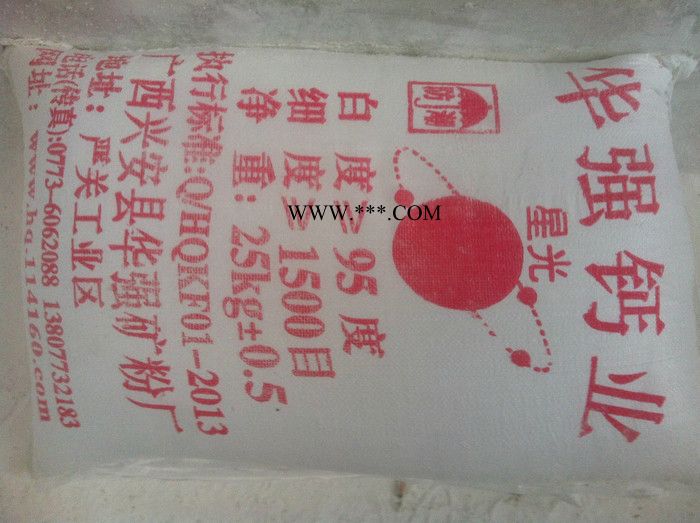 华强钙业
星光
防潮
白 度≥95度
细 度≥1500目
净 重:25kg±0.5
执行标准:Q/HQKF01-2013
广西兴安县华强矿粉厂
地址:严关工业区
电话(传真):0773-6062088 13807732183
网址:www.hq.114160.com
WWW.***.COM